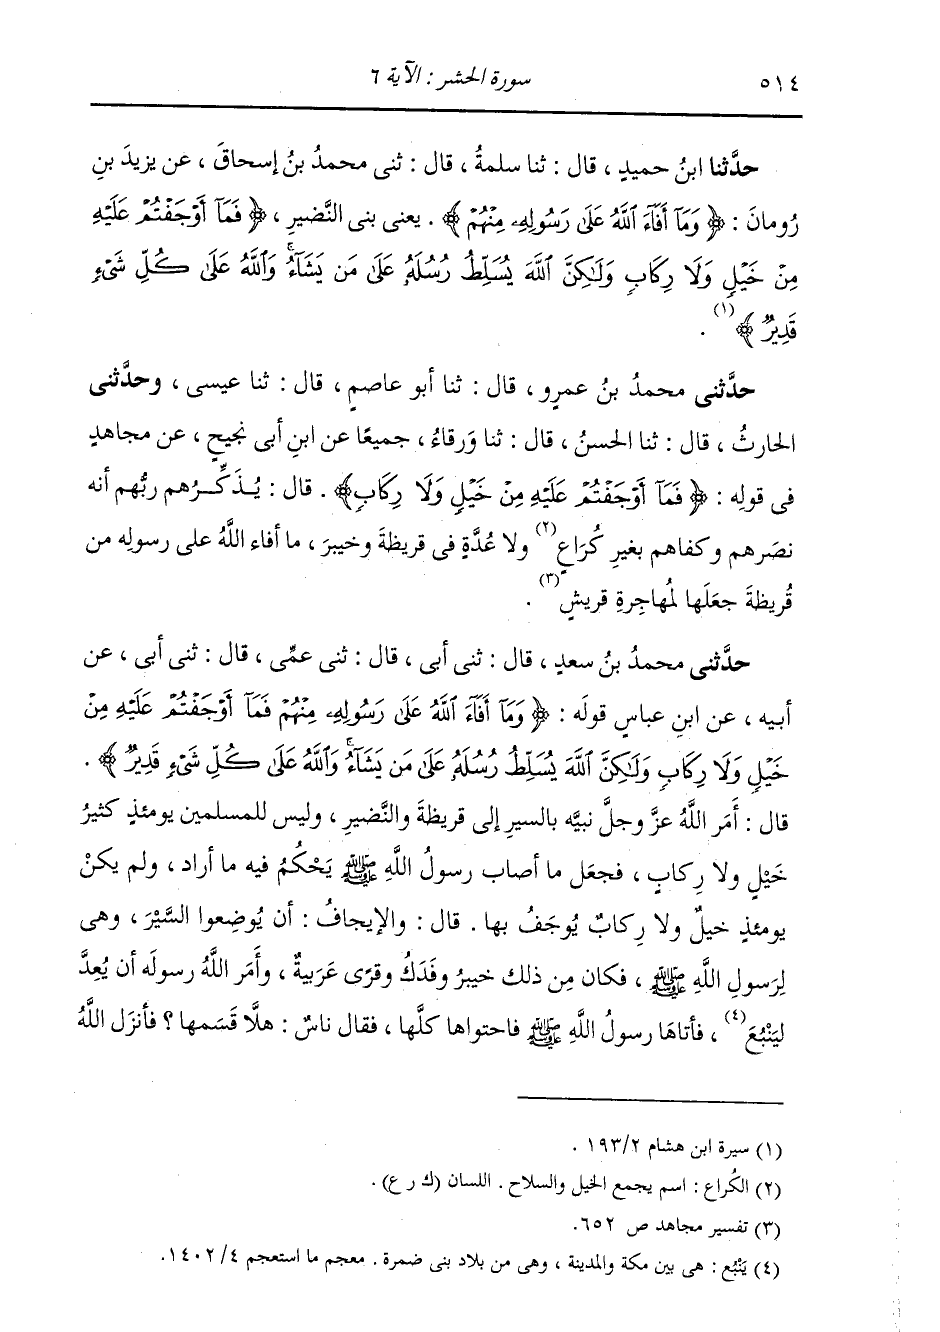 ٥١٤
سورة الحشر : الآية ٦
حدَّثنا ابنُ حميدٍ ، قال : ثنا سلمةُ ، قال : ثنى محمدُ بنُ إسحاقَ ، عن يزيدَ بنِ
رُومانَ : ﴿ وَمَآ أَفَآءَ ٱللَّهُ عَلَىٰ رَسُولِهِۦ مِنْهُمْ ﴾ . يعنى بنى النَّضيرِ ، ﴿ فَمَآ أَوْجَفْتُمْ عَلَيْهِ
مِنْ خَيْلٍ وَلَا رِكَابٍ وَلَٰكِنَّ ٱللَّهَ يُسَلِّطُ رُسُلَهُۥ عَلَىٰ مَن يَشَآءُۚ وَٱللَّهُ عَلَىٰ كُلِّ شَىْءٍ
قَدِيرٌ ﴾(١) .
حدَّثنى محمدُ بنُ عمرٍو ، قال : ثنا أبو عاصمٍ ، قال : ثنا عيسى ، وحدَّثنى
الحارثُ ، قال : ثنا الحسنُ ، قال : ثنا وَرقاءُ ، جميعًا عن ابنِ أبى نَجيحٍ ، عن مجاهدٍ
فى قولِه : ﴿ فَمَآ أَوْجَفْتُمْ عَلَيْهِ مِنْ خَيْلٍ وَلَا رِكَابٍ﴾ . قال : يُـذَكِّـرُهم ربُّهم أنه
نصَرهم وكفاهم بغيرِ كُرَاعٍ(٢) ولا عُدَّةٍ فى قريظةَ وخيبرَ ، ما أفاء اللَّهُ على رسولِه من
قُريظةَ جعَلَها لمُهاجِرةِ قريشٍ(٣) .
حدَّثنى محمدُ بنُ سعدٍ ، قال : ثنى أبى ، قال : ثنى عمِّى ، قال : ثنى أبى ، عن
أبيه ، عن ابنِ عباسٍ قولَه : ﴿ وَمَآ أَفَآءَ ٱللَّهُ عَلَىٰ رَسُولِهِۦ مِنْهُمْ فَمَآ أَوْجَفْتُمْ عَلَيْهِ مِنْ
خَيْلٍ وَلَا رِكَابٍ وَلَٰكِنَّ ٱللَّهَ يُسَلِّطُ رُسُلَهُۥ عَلَىٰ مَن يَشَآءُۚ وَٱللَّهُ عَلَىٰ كُلِّ شَىْءٍ قَدِيرٌ ﴾ .
قال : أَمَر اللَّهُ عزَّ وجلَّ نبيَّه بالسيرِ إلى قريظةَ والنَّضيرِ ، وليس للمسلمين يومئذٍ كثيرُ
خَيْلٍ ولا رِكابٍ ، فجعَل ما أصاب رسولُ اللَّهِ ﷺ يَحْكُمُ فيه ما أراد ، ولم يكنْ
يومئذٍ خيلٌ ولا رِكابٌ يُوجَفُ بها . قال : والإيجافُ : أن يُوضِعوا السَّيْرَ ، وهى
لِرَسولِ اللَّهِ ﷺ ، فكان مِن ذلك خيبرُ وفَدَكُ وقرًى عَرَبيةٌ ، وأَمَر اللَّهُ رسولَه أن يُعِدَّ
ليَنْبُعَ(٤) ، فأتاهَا رسولُ اللَّهِ ﷺ فاحتواها كلَّها ، فقال ناسٌ : هلَّا قَسَمها ؟ فأنزَل اللَّهُ
(١) سيرة ابن هشام ١٩٣/٢ .
(٢) الكُراع : اسم يجمع الخيل والسلاح . اللسان (ك ر ع) .
(٣) تفسير مجاهد ص ٦٥٢.
(٤) يَنْبُع : هى بين مكة والمدينة ، وهى من بلاد بنى ضمرة . معجم ما استعجم ١٤٠٢/٤.